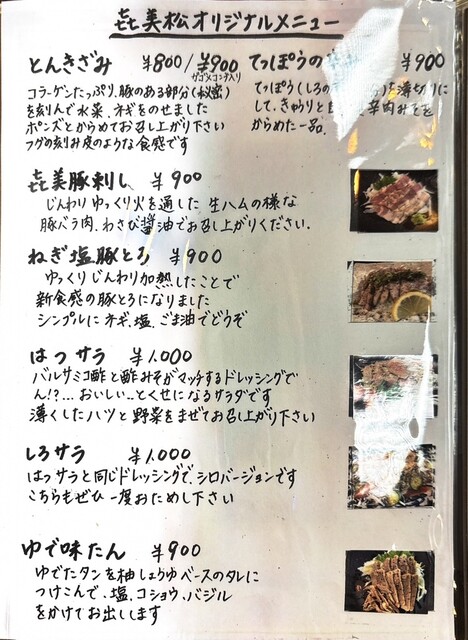 㐂美松オリジナルメニュー
とんきざみ ¥800/¥900
ガゴメコンブ入り
コラーゲンたっぷり、豚のある部分(秘密)
を刻んで水菜、ネギをのせました
ポンズとからめてお召し上がり下さい
フグの刻み皮のような食感です
てっぽうの ¥900
てっぽう(しろの )を薄切りに
して、きゅうりと 辛肉みそを
からめた一品.
㐂美豚刺し ¥900
じんわりゆっくり火を通した生ハムの様な
豚バラ肉、わさび醤油でお召し上がりください.
ねぎ塩豚とろ ¥900
ゆっくりじんわり加熱したことで
新食感の豚とろになりました
シンプルにネギ、塩、ごま油でどうぞ
はつサラ ¥1,000
バルサミコ酢と酢みそがマッチするドレッシングで
ん!?...おいしい...とくせになるサラダです
薄くしたハツと野菜をまぜてお召し上がり下さい
しろサラ ¥1,000
はつサラと同じドレッシングで、シロバージョンです
こちらもぜひ一度おためし下さい
ゆで味たん ¥900
ゆでたタンを柚しょうゆベースのタレに
つけこんで、塩、コショウ、バジル
をかけてお出しします